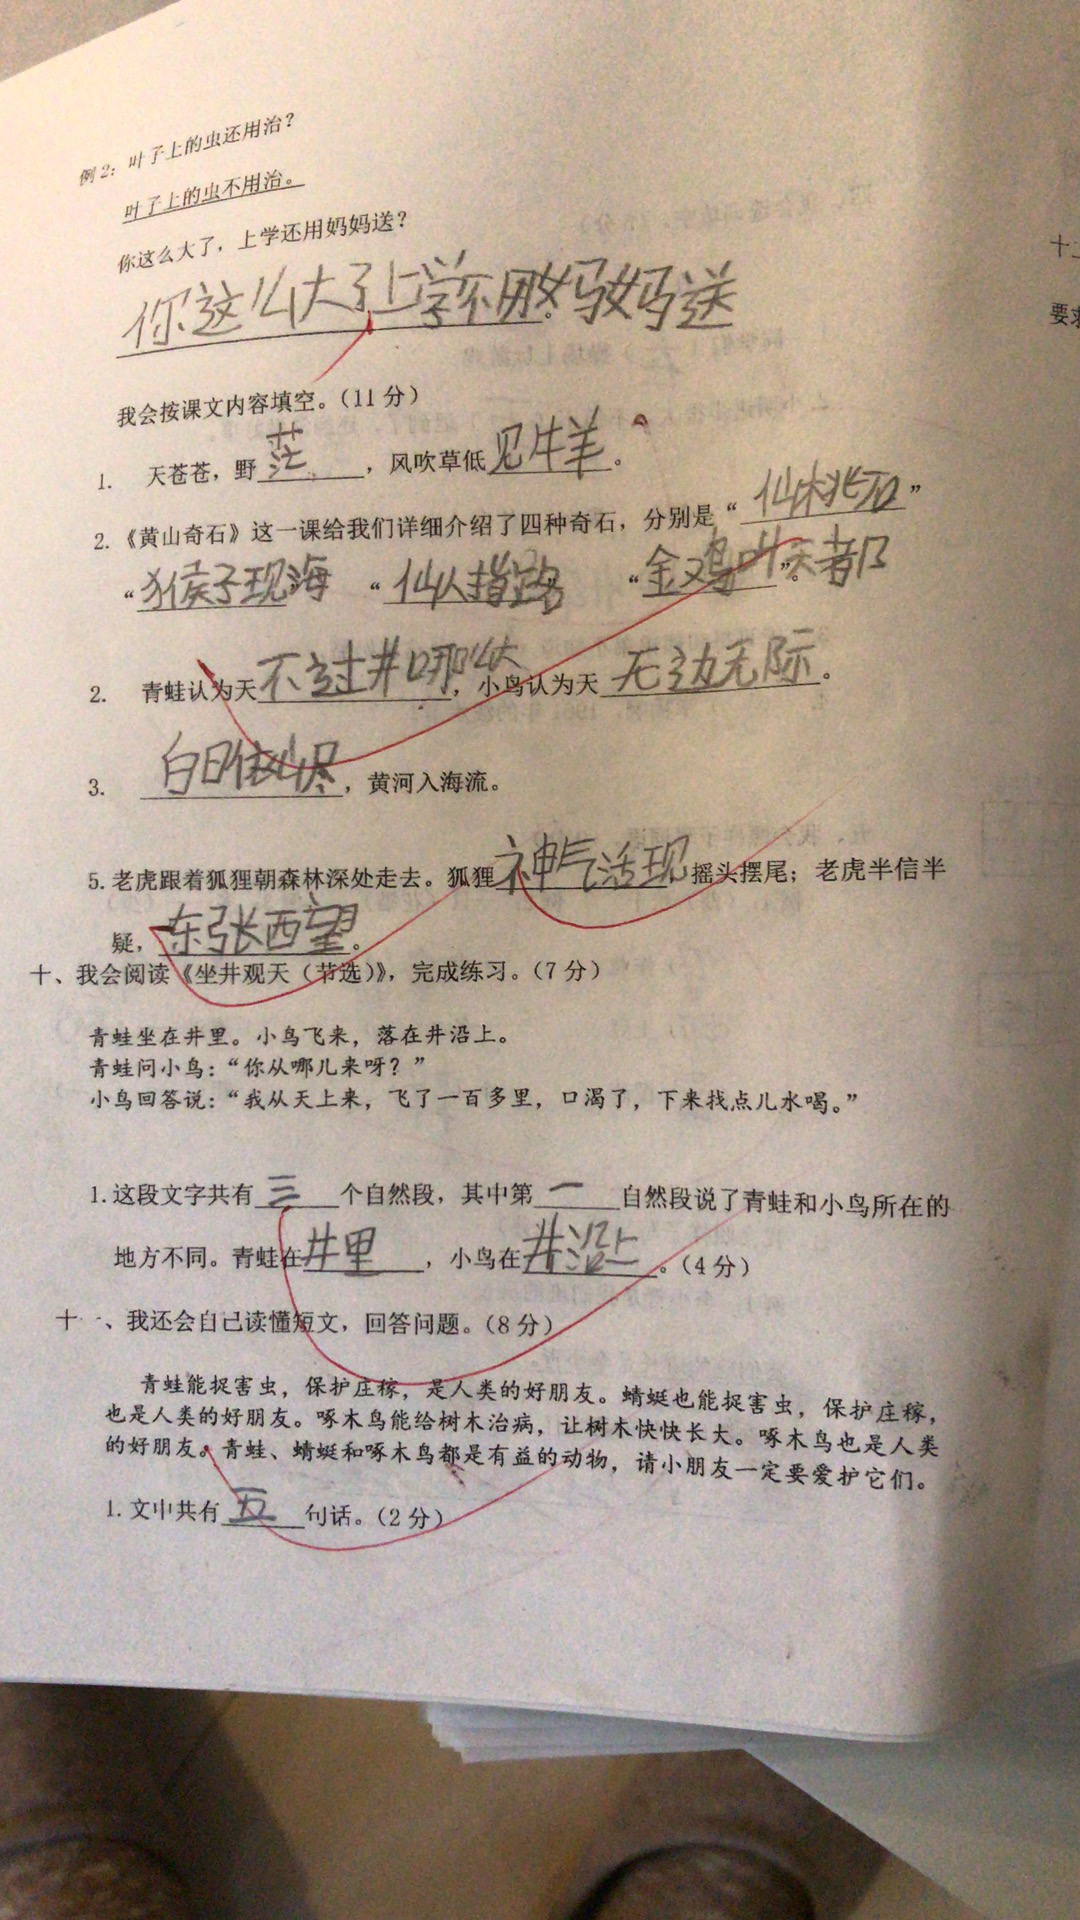 例2：叶子上的虫还用治？
叶子上的虫不用治。
你这么大了，上学还用妈妈送？
你这么大了上学不用妈妈送。
我会按课文内容填空。（11分）
1. 天苍苍，野茫，风吹草低见牛羊。
2.《黄山奇石》这一课给我们详细介绍了四种奇石，分别是“仙桃石”
“猴子现海 “仙人指路 “金鸡叫天都”。
2. 青蛙认为天不过井口哪么大，小鸟认为天无边无际。
3. 白日依山尽，黄河入海流。
5.老虎跟着狐狸朝森林深处走去。狐狸神气活现摇头摆尾；老虎半信半
疑，东张西望。
十、我会阅读《坐井观天（节选）》，完成练习。（7分）
青蛙坐在井里。小鸟飞来，落在井沿上。
青蛙问小鸟：“你从哪儿来呀？”
小鸟回答说：“我从天上来，飞了一百多里，口渴了，下来找点儿水喝。”
1.这段文字共有三个自然段，其中第一自然段说了青蛙和小鸟所在的
地方不同。青蛙在井里，小鸟在井沿上。（4分）
十一、我还会自己读懂短文，回答问题。（8分）
青蛙能捉害虫，保护庄稼，是人类的好朋友。蜻蜓也能捉害虫，保护庄稼，
也是人类的好朋友。啄木鸟能给树木治病，让树木快快长大。啄木鸟也是人类
的好朋友。青蛙、蜻蜓和啄木鸟都是有益的动物，请小朋友一定要爱护它们。
1.文中共有五句话。（2分）
十二
要求